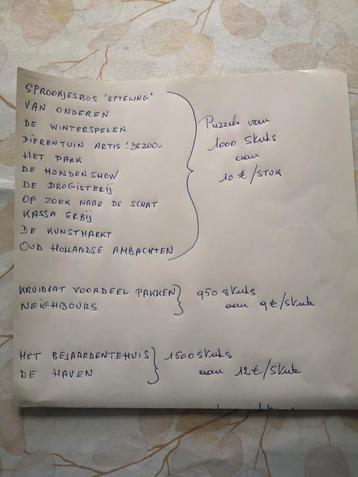 SPROOKJESBOS 'EFTELING'
VAN ONDEREN
DE WINTERSPELEN
DIERENTUIN ARTIS : DE ZOO
HET PARK
DE HONDENSHOW
DE DROGISTERIJ
OP ZOEK NAAR DE SCHAT
KASSA ERBIJ
DE KUNSTMARKT
OUD HOLLANDSE AMBACHTEN
Puzzels van
1000 stuks
aan
10 €/STUK
KRUIDVAT VOORDEEL PAKKEN
NEIGHBOURS
950 stuks
aan 9 €/stuk
HET BEJAARDENTEHUIS
DE HAVEN
1500 stuks
aan 12 €/stuk